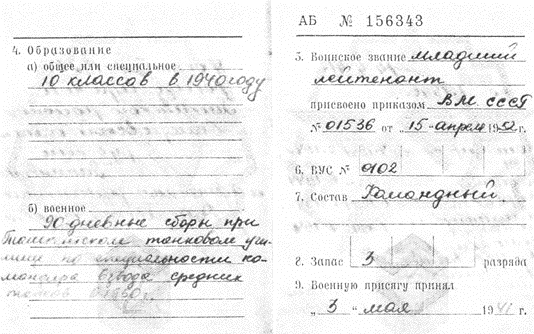 4. Образование
а) общее или специальное
10 классов в 1940 году
б) военное
90-дневные сборы при
танковом учи-
лище по специальности ко-
мандира взвода средних
танков
АБ № 156343
5. Воинское звание младший
лейтенант
присвоено приказом ВМ СССР
№ 01536 от 15 апреля 1952 г.
6. ВУС № 0102
7. Состав Командный
8. Запас 3 разряда
9. Военную присягу принял
„ 3 " мая 1941 г.